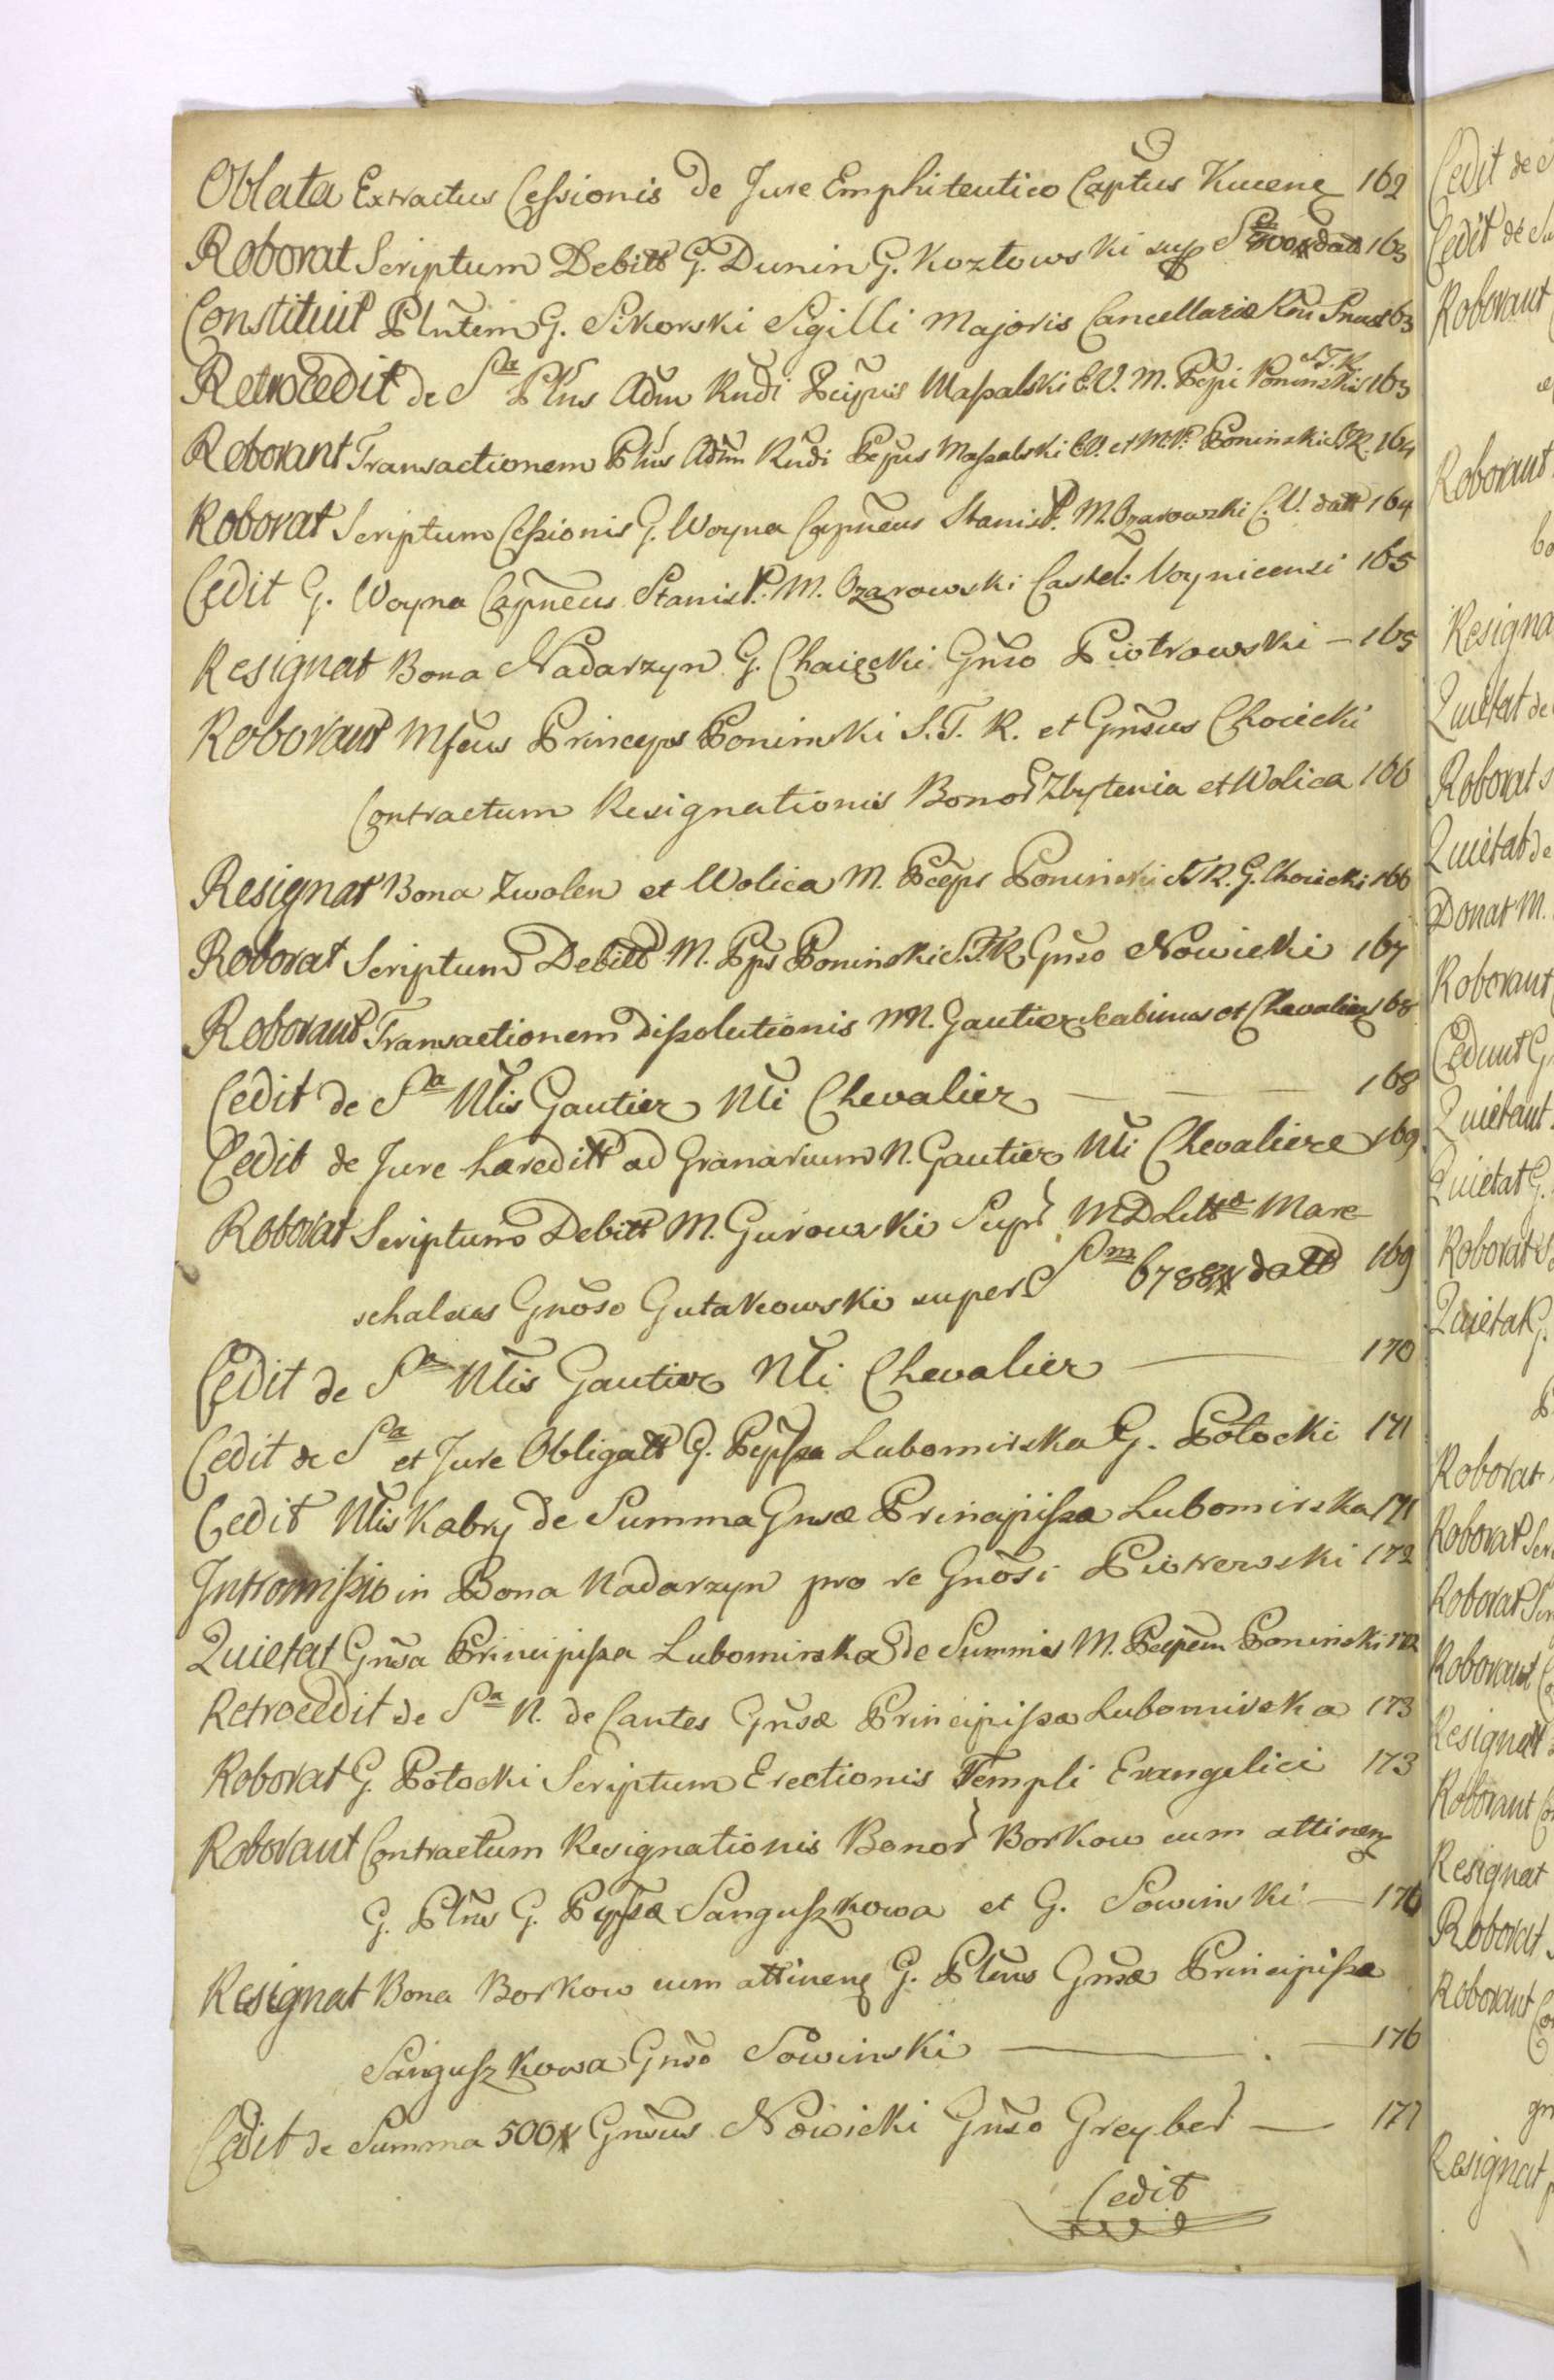 Oblata Extractus Cessionis de Jure Emphiteutico Captus Kucene 162
Roborat Scriptum Debitt G. Dunin G. Kozłowski sup S 163
Constituit Pltntem G. Sikorski Sigilli Majoris Cancellariæ 163
Retrocedit de Sa Pltus Adm Rndi Pcipis Massalski E.V. M. Pcpi Poninski S.T.R. 163
Roborant Transactionem Pltus Adm Rndi Pcpus Massalski E.V. et M.P. Poninski S.T.R. 164
Roborat Scriptum Cessionis G. Woyna Capneus Stanisl. M. Ozarowski C.V. datt 164
Cedit G. Woyna Capneus Stanisl. M. Ozarowski Castel: Voynicensi 165
Resignat Bona Nadarzyn G. Chaięcki Gnso Piotrowski — 165
Roborant Mfcus Princeps Poninski S.T.R. et Gnsus Chociecki
Contractum Resignationis Bonor Zbytenia et Wolica 166
Resignat Bona Zwolen et Wolica M. Pceps Poninski S.T.R. G. Chociecki 166
Roborat Scriptum Debitt M. Pps Poninski S.T.R. Gnso Nowicki 167
Roborant Transactionem dissolutionis NN. Gautier Scabinus et Chevalier 168
Cedit de Sa Nlis Gautier Nli Chevalier — — 168
Cedit de Jure hæreditt ad Granarium N. Gautier Nli Chevaliere 169
Roborat Scriptum Debitt M. Gurowski Supr M.D. Littæ Mare
schalcus Gnoso Gutakowski super Sm 6788# datt 169
Cedit de Sa Nlis Gautier Nli Chevalier — 170
Cedit de Sa et Jure Obligatt G. Ppssa Lubomirska G. Potocki 171
Cedit Nlis Kabry de Summa Gnsæ Principissæ Lubomirska 171
Intromissio in Bona Nadarzyn pro re Gnosi Piotrowski 172
Quietat Gnsa Principissa Lubomirska de Summis M. Pcipem Poninski 172
Retrocedit de Sa N. de Cantes Gnsæ Principissæ Lubomirska 173
Roborat G. Potocki Scriptum Erectionis Templi Evangelici 173
Roborant Contractum Resignationis Bonor Borkow cum attinen
G. Pltus G. Ppssæ Sanguszkowa et G. Sowinski — 176
Resignat Bona Borkow cum attinen G. Pltus Gnsæ Principissæ
Sanguszkowa Gnso Sowinski — 176
Cedit de Summa 500# Gnsus Nowicki Gnso Greyber — 177
Cedit
Cedit de
Cedit de
Roborant
Roborant
Resigna
Quietat de
Roborat
Quietat de
Donat M.
Roborant
Cedunt G
Quietant
Quietat G.
Roborat
Quietat G.
Roborat
Roborat
Roborat
Roborant
Resignat
Roborant
Resignat
Roborat
Roborant
Resignat